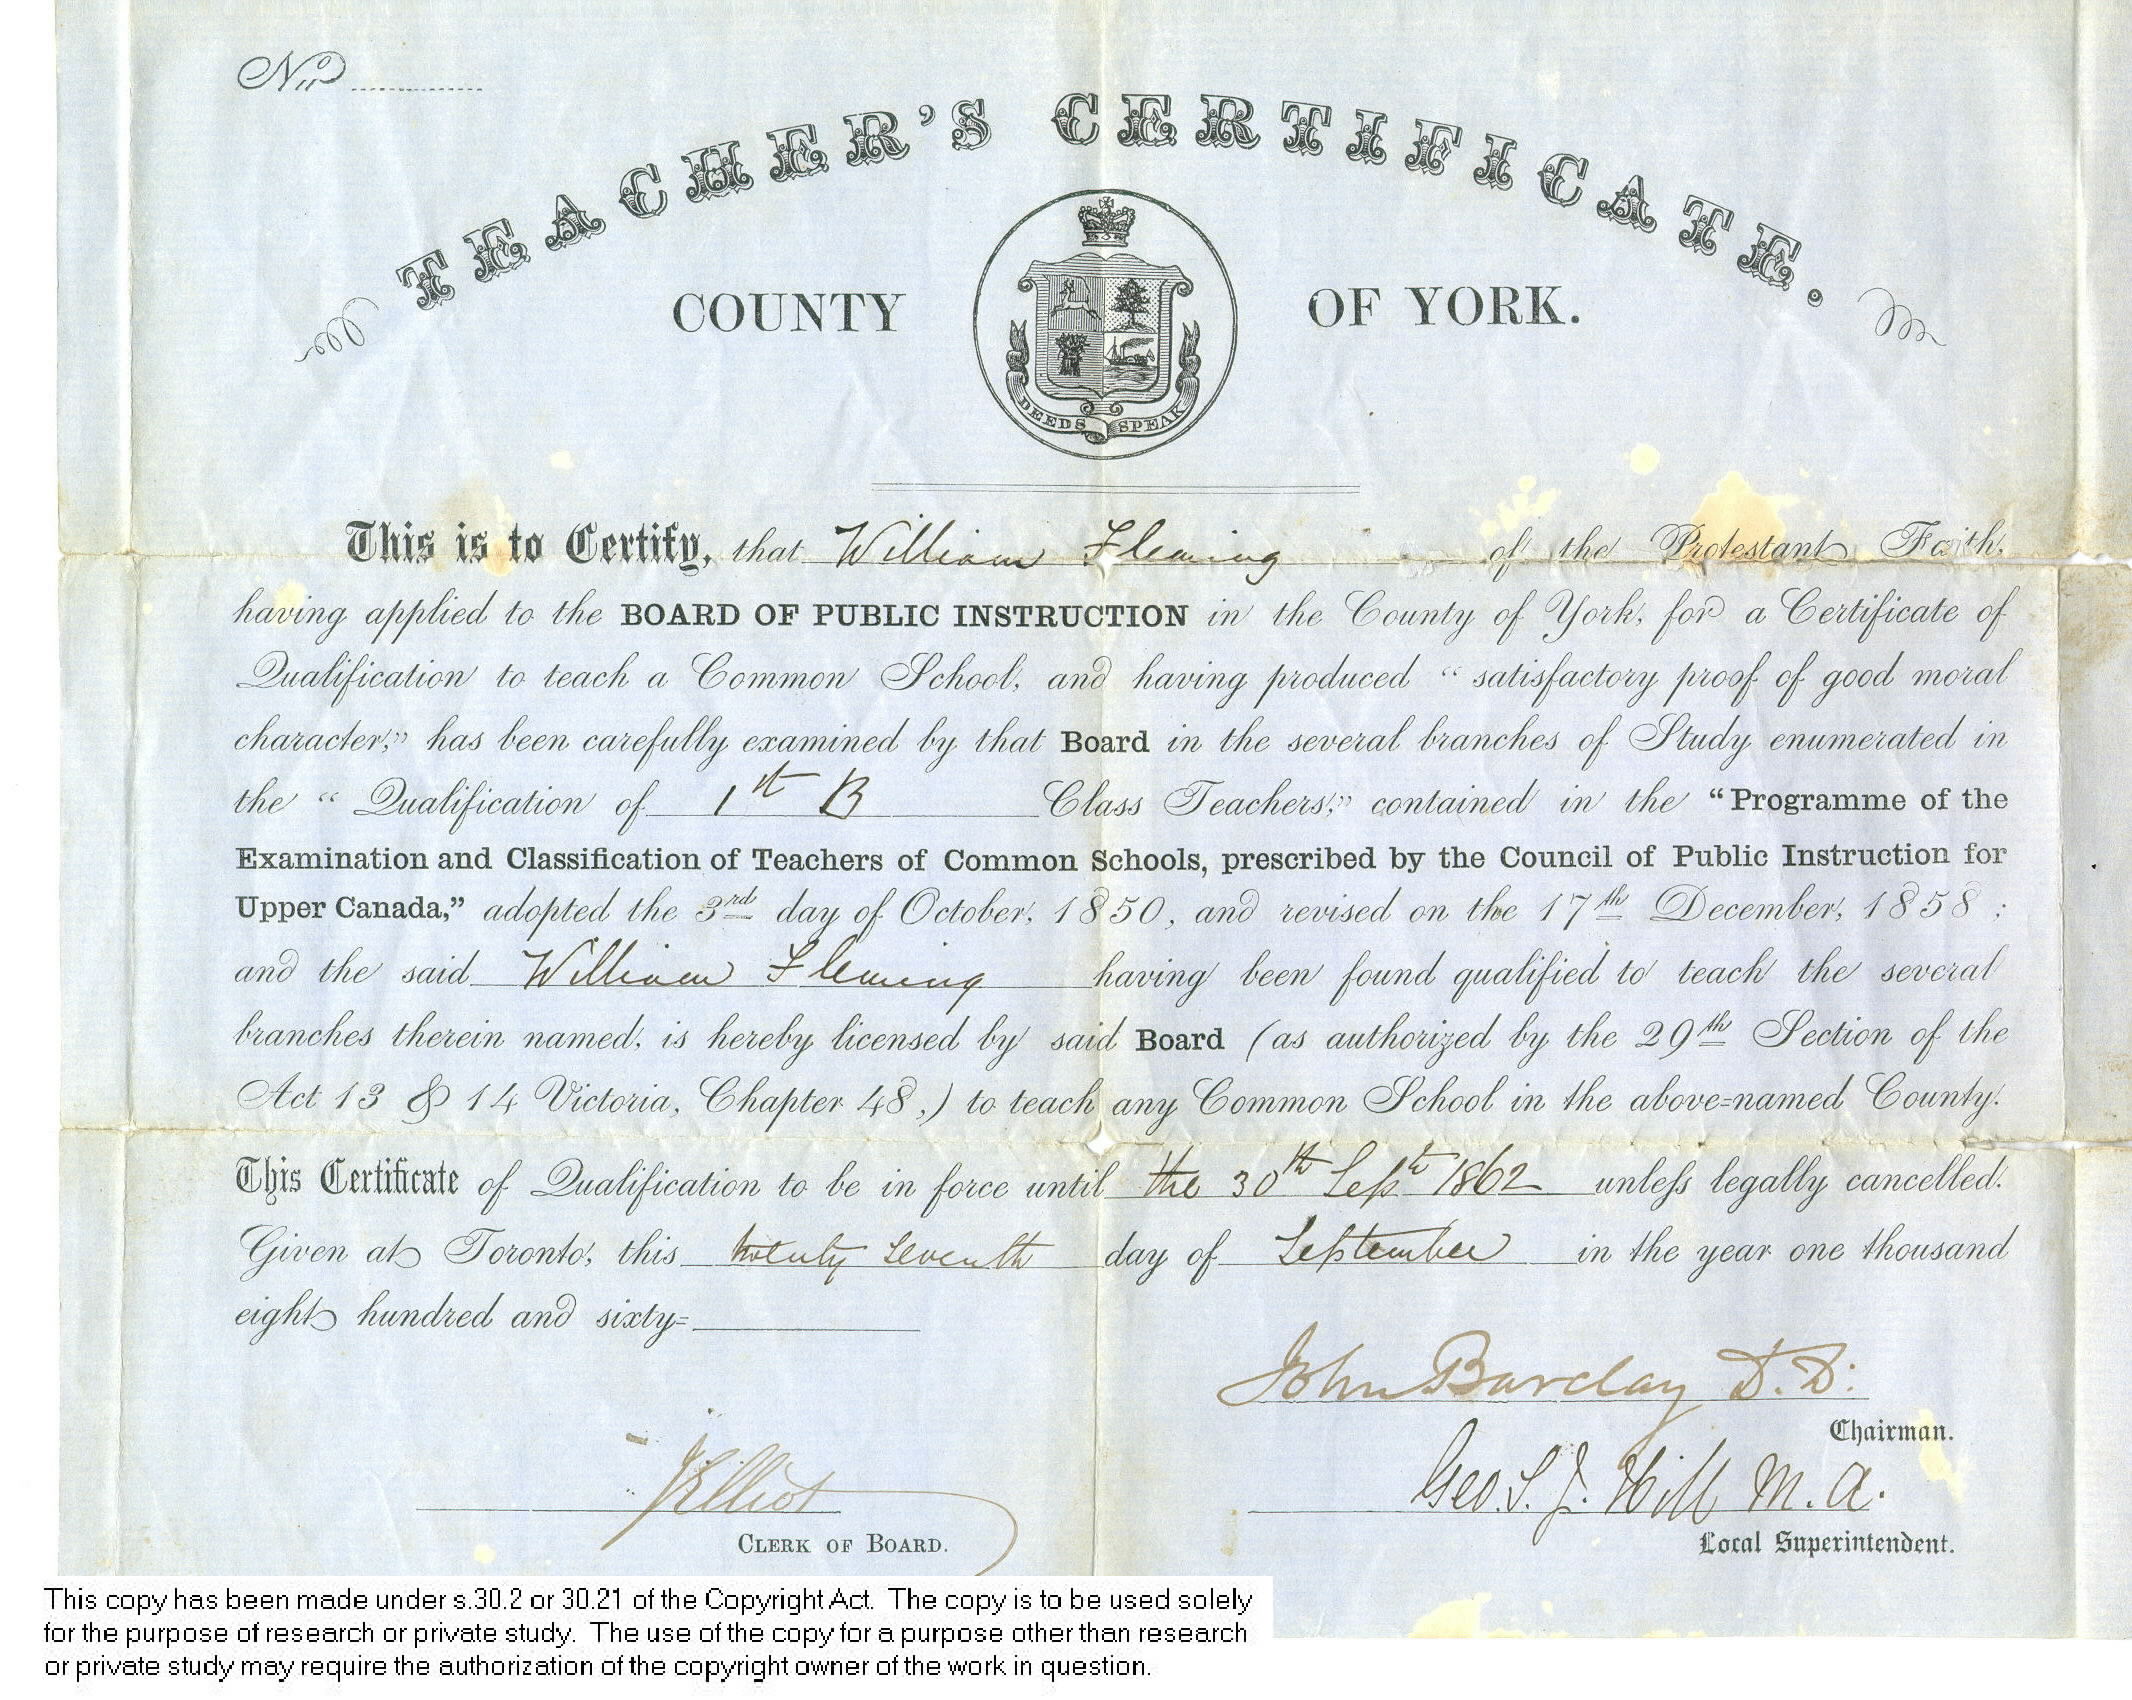 No
TEACHER'S CERTIFICATE.
COUNTY OF YORK.
DEEDS SPEAK
This is to Certify, that William Fleming of the Protestant Faith,
having applied to the BOARD OF PUBLIC INSTRUCTION in the County of York, for a Certificate of
Qualification to teach a Common School, and having produced "satisfactory proof of good moral
character," has been carefully examined by that Board in the several branches of Study enumerated in
the "Qualification of 1st B Class Teachers," contained in the "Programme of the
Examination and Classification of Teachers of Common Schools, prescribed by the Council of Public Instruction for
Upper Canada," adopted the 3rd day of October, 1850, and revised on the 17th December, 1858;
and the said William Fleming having been found qualified to teach the several
branches therein named, is hereby licensed by said Board (as authorized by the 29th Section of the
Act 13 & 14 Victoria, Chapter 48,) to teach any Common School in the above-named County.
This Certificate of Qualification to be in force until the 30th Sept 1862 unless legally cancelled.
Given at Toronto, this twenty seventh day of September in the year one thousand
eight hundred and sixty=
John Barclay D.D.
Chairman.
J Elliot
CLERK OF BOARD.
Geo. S. J. Hill M.A.
Local Superintendent.
This copy has been made under s.30.2 or 30.21 of the Copyright Act. The copy is to be used solely
for the purpose of research or private study. The use of the copy for a purpose other than research
or private study may require the authorization of the copyright owner of the work in question.